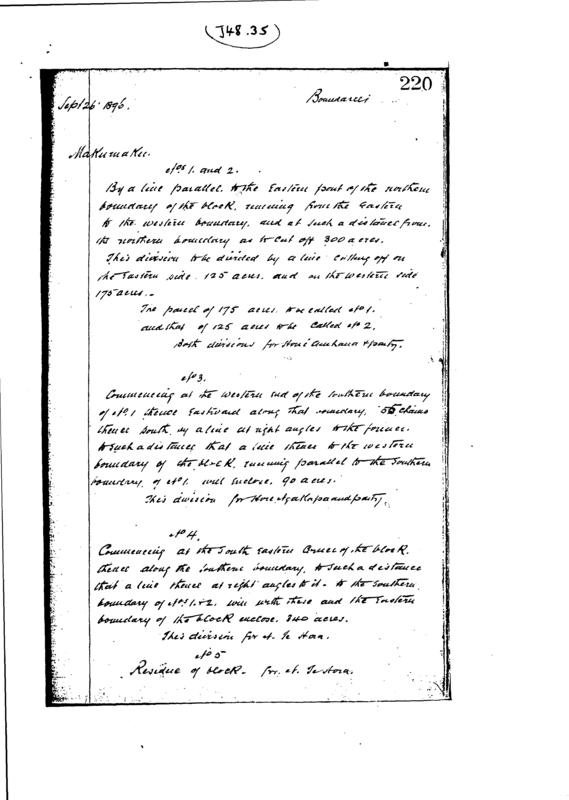 (J48.35)
220
Sept 26 1896.
Boundaries
Makumaku.
Nos 1. and 2.
By a line parallel to the Eastern part of the northern
boundary of the block, running from the Eastern
to the western boundary, and at such a distance from
the northern boundary as to cut off 300 acres.
This division to be divided by a line cutting off on
the Eastern side 125 acres and on the western side
175 acres.-
The parcel of 175 acres to be called No 1.
and that of 125 acres to be called No 2.
Both divisions for Honi & party.
No 3.
Commencing at the western end of the southern boundary
of No. 1 thence Eastward along that boundary, 55 chains
thence south by a line at right angles to the former
to such a distance that a line thence to the western
boundary of the block, running parallel to the Southern
boundary of No 1. will enclose 90 acres.
This division for Hore and party.
No 4.
Commencing at the South Eastern Corner of the block,
thence along the Southern boundary, to such a distance
that a line thence at right angles to it - to the Southern
boundary of Nos 1. & 2. will with these and the Eastern
boundary of the block enclose 340 acres.
This division for H. Te Hora.
No 5
Residue of block - for. H. Te Hora.